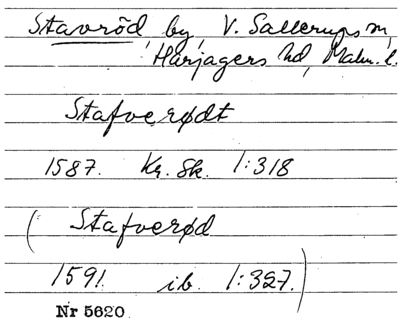 Stavröd by, V. Sallerups sn,
Harjagers hd, Malm. l.
Stafverødt
1587. Kr. Sk. 1:318
(Stafverød
1591. ib. 1:327.)
Nr 5620